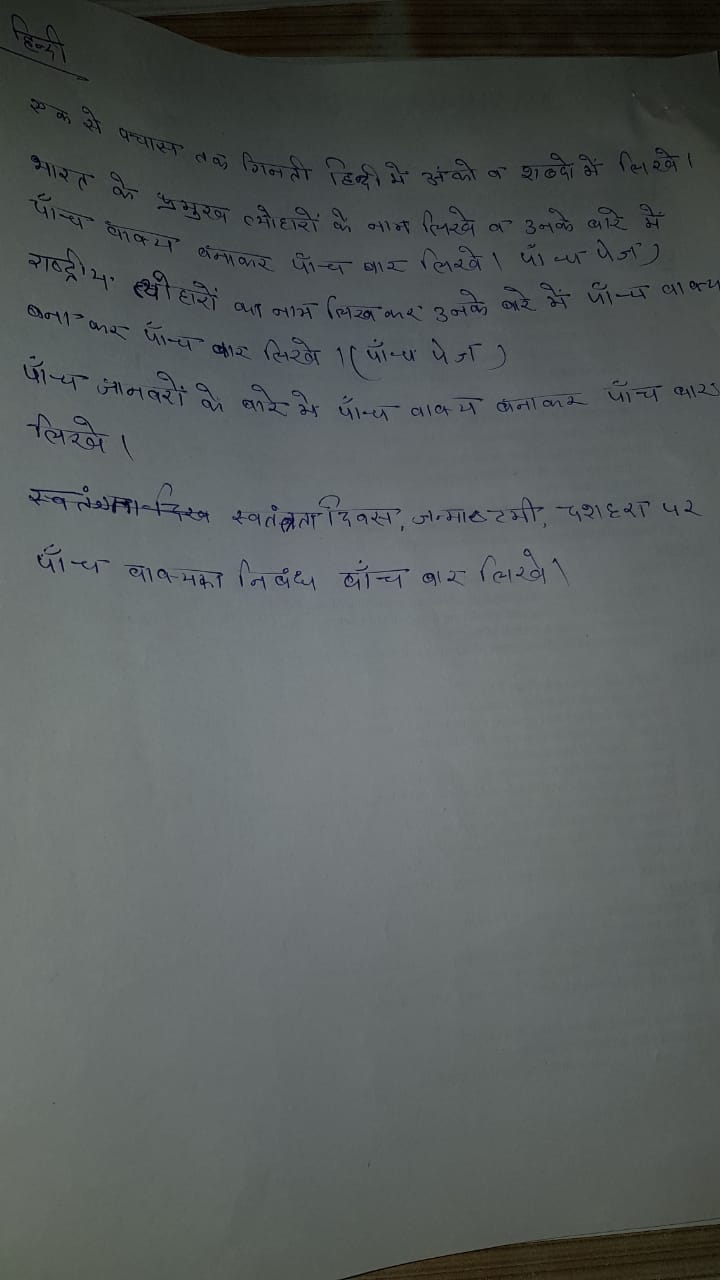 हिन्दी
एक से पचास तक गिनती हिन्दी मे अंको व शब्दो में लिखे।
भारत के प्रमुख त्यौहारों के नाम लिखे व उनके बारे में
पाँच वाक्य बनाकर पाँच बार लिखे। पाँच पेज)
राष्ट्रीय त्यौहारों का नाम लिखकर उनके बारे में पाँच वाक्य
बना कर पाँच बार लिखे।(पाँच पेज)
पाँच जानवरों के बारे मे पाँच वाक्य बनाकर पाँच बार
लिखे।
स्वतंत्रता दिवस, जन्माष्टमी, दशहरा पर
पाँच वाक्यका निबंध पाँच बार लिखे।